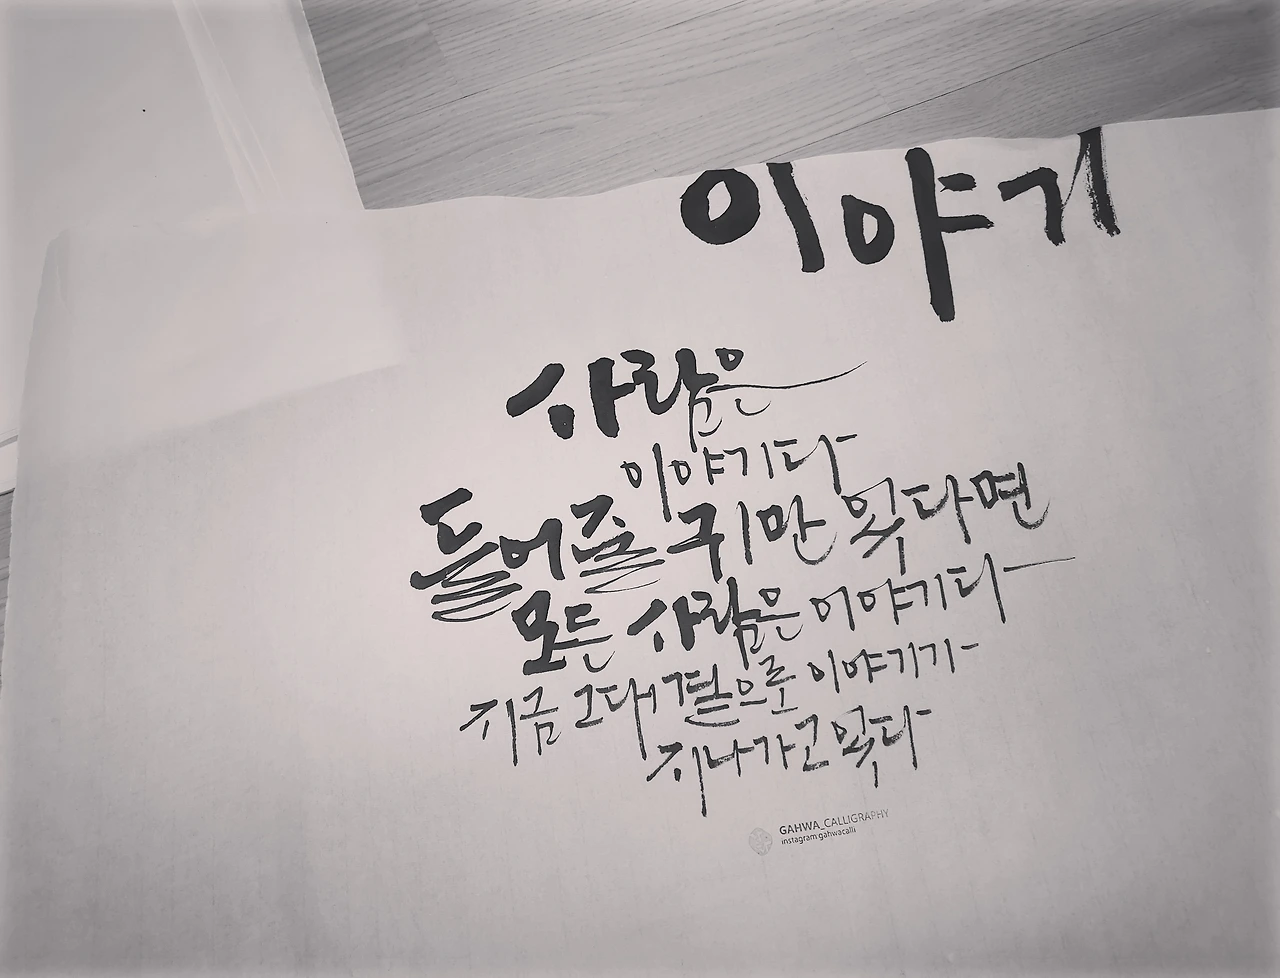 이야기
사람은
이야기다
들어줄 귀만 있다면
모든 사람은 이야기다
지금 그대 곁으로 이야기가
지나가고 있다
GAHWA_CALLIGRAPHY
instagram:gahwacalli